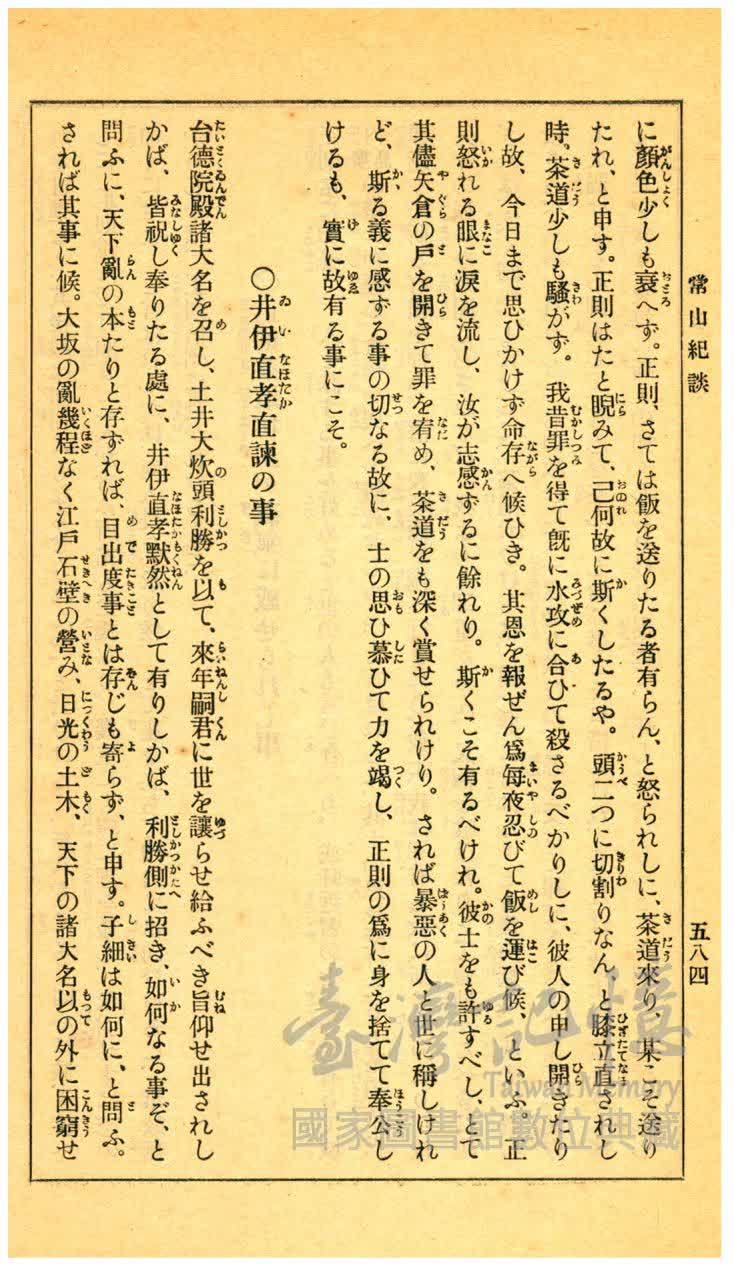 常山紀談
五八四
に顏色少しも衰へず。正則、さては飯を送りたる者有らん、と怒られしに、茶道來り、某こそ送り
たれ、と申す。正則はたと睨みて、己何故に斯くしたるや。頭二つに切割りなん、と膝立直されし
時。茶道少しも騷がず。我昔罪を得て既に水攻に合ひて殺さるべかりしに、彼人の申し開きたり
し故、今日まで思ひかけず命存へ候ひき。其恩を報ぜん爲每夜忍びて飯を運び候、といふ。正
則怒れる眼に淚を流し、汝が志感ずるに餘れり。斯くこそ有るべけれ。彼士をも許すべし、とて
其儘矢倉の戶を開きて罪を宥め、茶道をも深く賞せられけり。されば暴惡の人と世に稱しけれ
ど、斯る義に感ずる事の切なる故に、士の思ひ慕ひて力を竭し、正則の爲に身を捨てて奉公し
けるも、實に故有る事にこそ。
〇井伊直孝直諫の事
台德院殿諸大名を召し、土井大炊頭利勝を以て、來年嗣君に世を讓らせ給ふべき旨仰せ出されし
かば、皆祝し奉りたる處に、井伊直孝默然として有りしかば、利勝側に招き、如何なる事ぞ、と
問ふに、天下亂の本たりと存ずれば、目出度事とは存じも寄らず、と申す。子細は如何に、と問ふ。
されば其事に候。大坂の亂幾程なく江戶石壁の營み、日光の土木、天下の諸大名以の外に困窮せ
臺灣記憶
Taiwan Memory
國家圖書館數位典藏